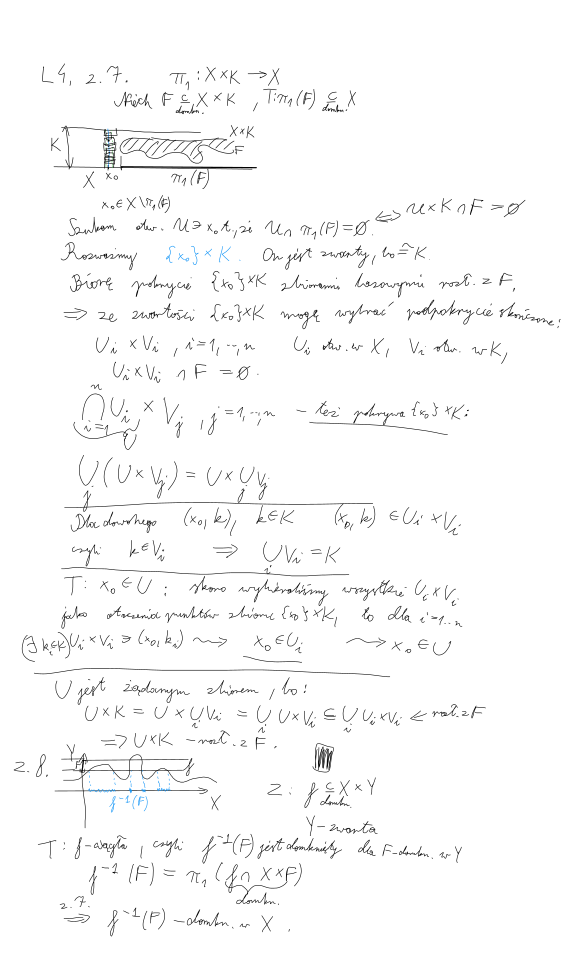 L4, z.7. π₁: X×K → X
Niech F ⊆ X×K, T: π₁(F) ⊆ X
domkn. domkn.
X×K
K F
X x₀ π₁(F)
x₀ ∈ X \ π₁(F)
Szukam otw. U ∋ x₀ t, że U ∩ π₁(F) = ∅. ⇔ U×K ∩ F = ∅
Rozważmy {x₀}×K. On jest zwarty, bo ≅ K.
Biorę pokrycie {x₀}×K zbiorami bazowymi rozł. z F,
⇒ ze zwartości {x₀}×K mogę wybrać podpokrycie skończone:
Uᵢ × Vᵢ, i=1,..,n Uᵢ otw. w X, Vᵢ otw. w K,
Uᵢ×Vᵢ ∩ F = ∅.
n
⋂ Uᵢ × Vⱼ, j=1,..,n – też pokrywa {x₀}×K:
i=1
U
⋃ (U×Vⱼ) = U× ⋃ Vⱼ
j j
Dla dowolnego (x₀, k), k∈K (x₀, k) ∈ Uᵢ×Vᵢ
czyli k∈Vᵢ ⇒ ⋃ Vᵢ = K
i
T: x₀ ∈ U : skoro wybieraliśmy wszystkie Uᵢ×Vᵢ
jako otoczenia punktów zbioru {x₀}×K, to dla i=1..n
(∃ kᵢ∈K) Uᵢ×Vᵢ ∋ (x₀, kᵢ) ⇝ x₀∈Uᵢ ⇝ x₀∈U
U jest żądanym zbiorem, bo:
U×K = U × ⋃ Vᵢ = ⋃ U×Vᵢ ⊆ ⋃ Uᵢ×Vᵢ ← rozł. z F
i i i
⇒ U×K – rozł. z F.
z.8. Y F f
f⁻¹(F) X
Z: f ⊆ X×Y
domkn.
Y – zwarta
T: f – ciągła, czyli f⁻¹(F) jest domknięty dla F – domkn. w Y
f⁻¹(F) = π₁(f ∩ X×F)
domkn.
z.7.
⇒ f⁻¹(F) – domkn. w X.